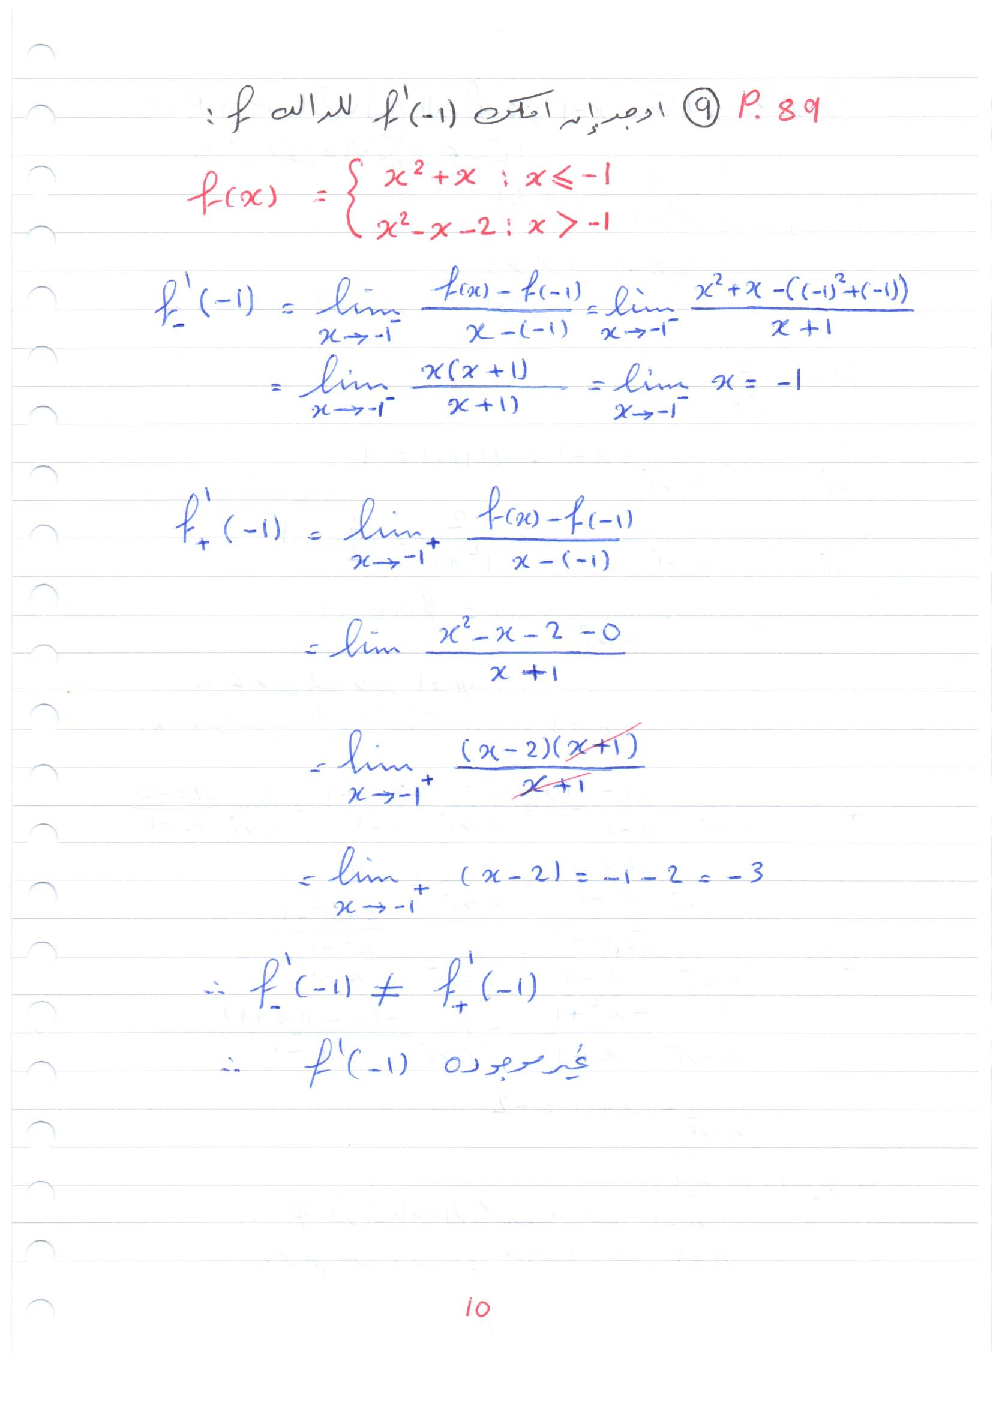 P. 89 ⑨ اوجد إن امكن f'(-1) للدالة f :
f(x) = { x² + x ; x ⩽ -1
x² - x - 2 ; x > -1
f'₋(-1) = lim x→-1⁻ (f(x) - f(-1)) / (x - (-1)) = lim x→-1⁻ (x² + x - ((-1)² + (-1))) / (x + 1)
= lim x→-1⁻ x(x + 1) / x + 1) = lim x→-1⁻ x = -1
f'₊(-1) = lim x→-1⁺ (f(x) - f(-1)) / (x - (-1))
= lim (x² - x - 2 - 0) / (x + 1)
= lim x→-1⁺ (x - 2)(x + 1) / (x + 1)
= lim x→-1⁺ (x - 2) = -1 - 2 = -3
∴ f'₋(-1) ≠ f'₊(-1)
∴ f'(-1) غير موجوده
10